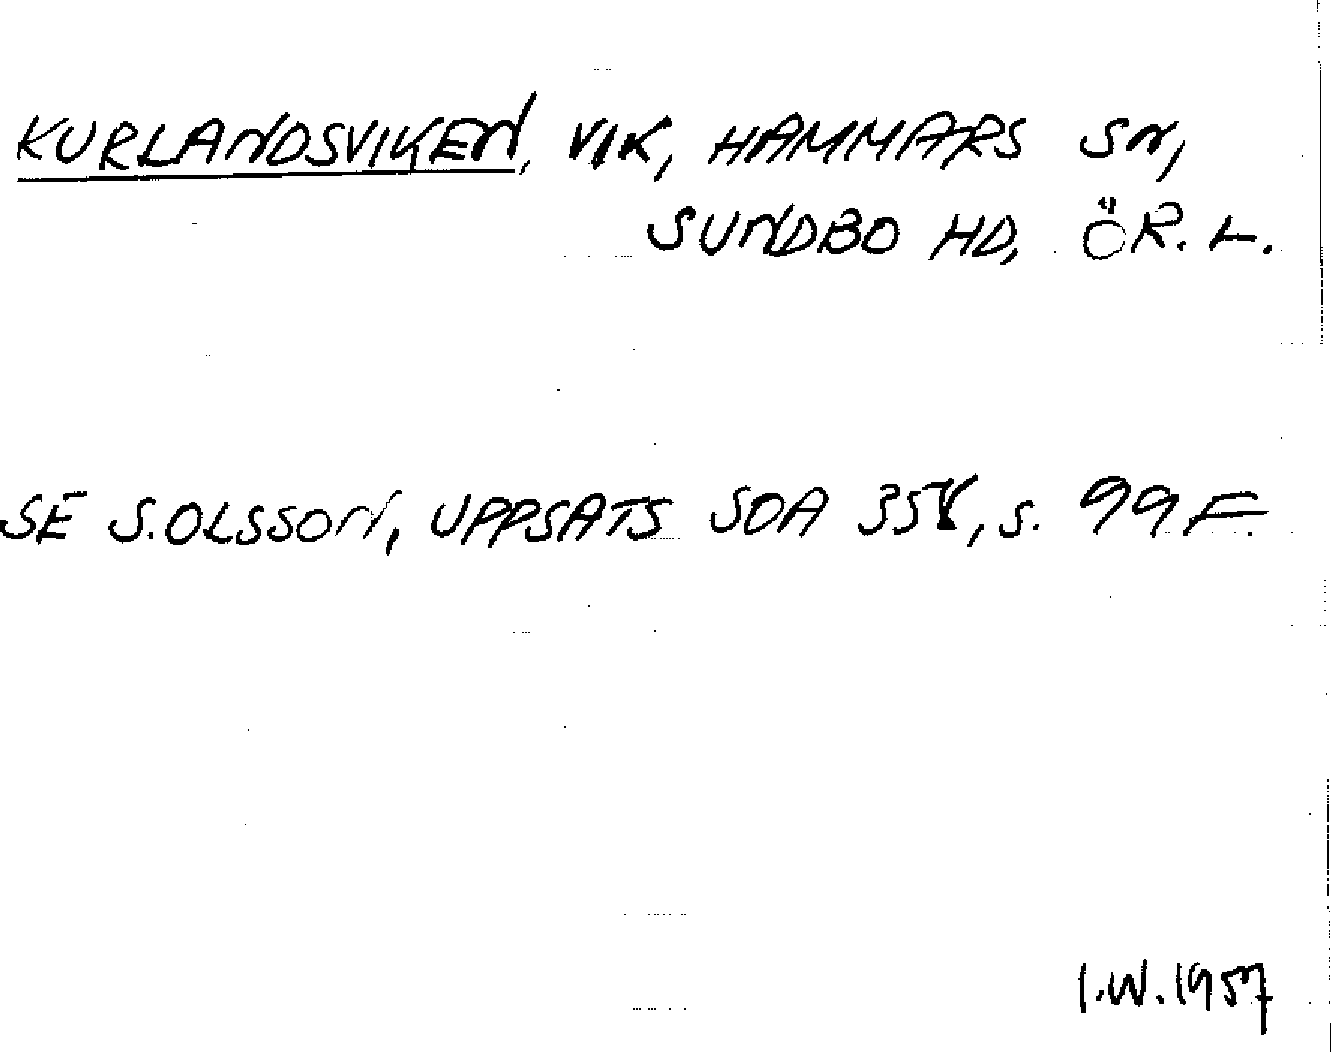 KURLANDSVIKEN, VIK, HAMMARS SN,
SUNDBO HD, ÖR. L.
SE S. OLSSON, UPPSATS SOA 358, s. 99 F.
I.W. 1957